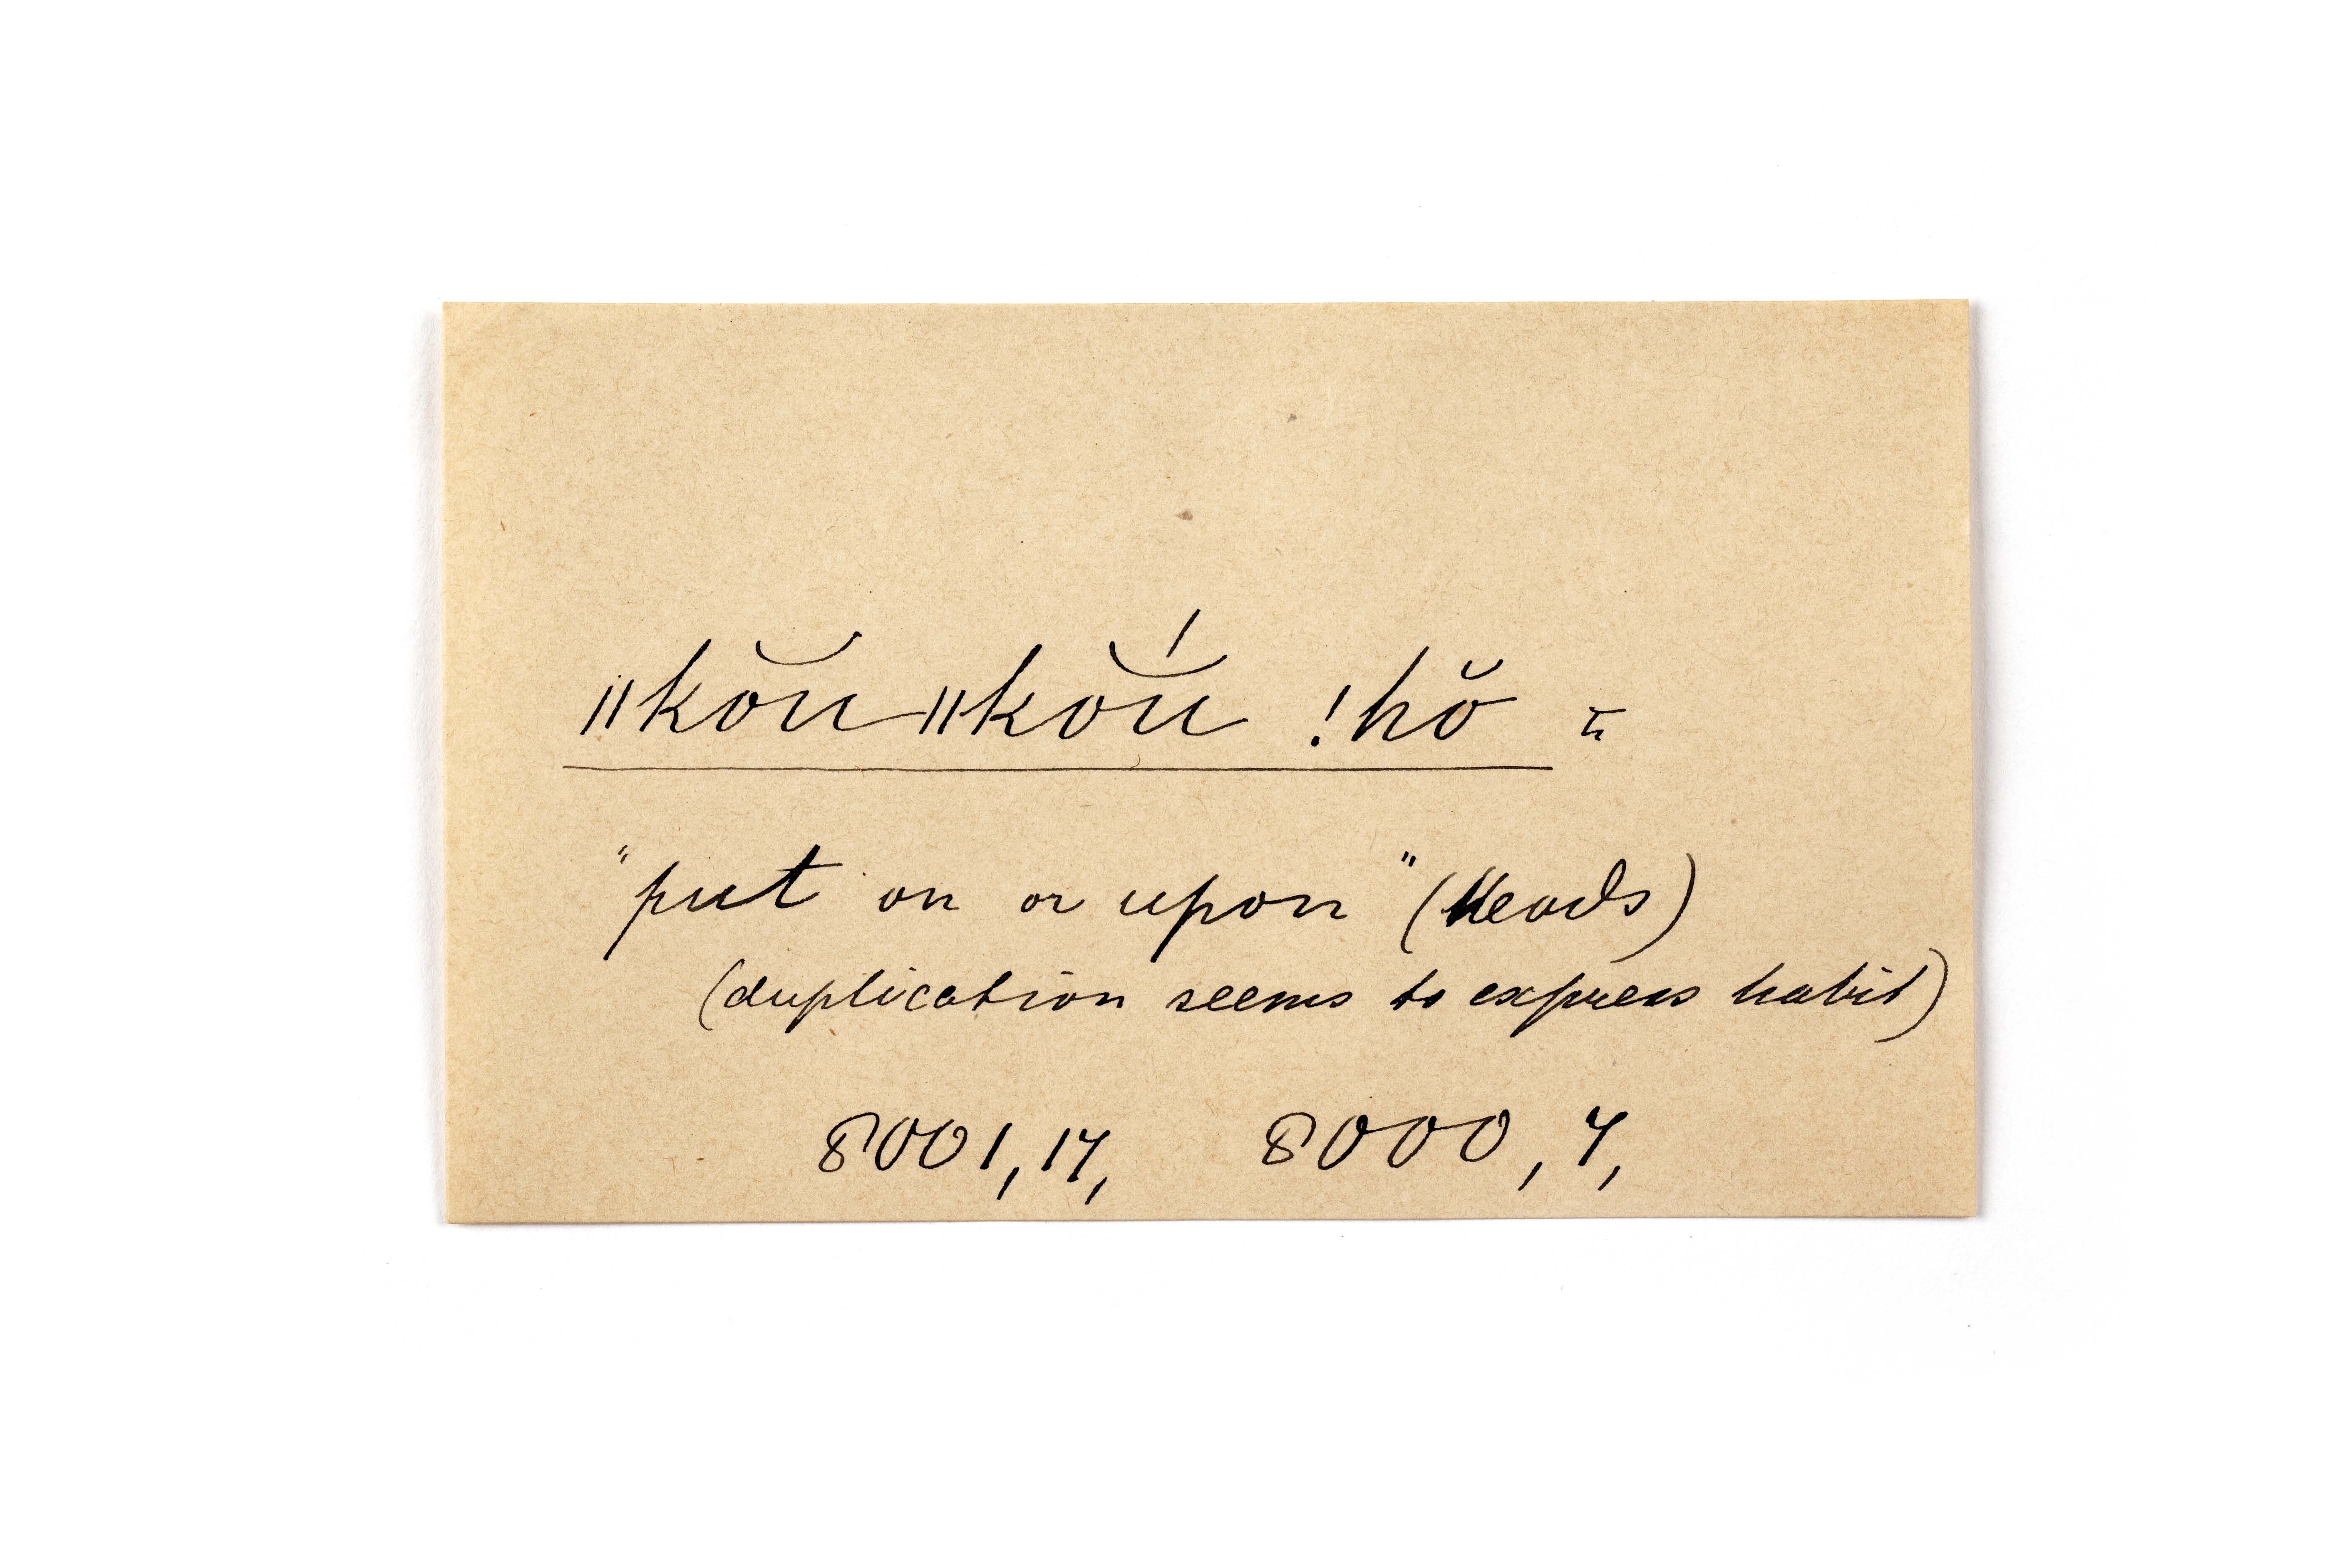 ǁkŏŭ-ǁkŏŭ́ !hŏ =
"put on or upon" (Heads)
(duplication seems to express habit)
8001, 17, 8000, 7,